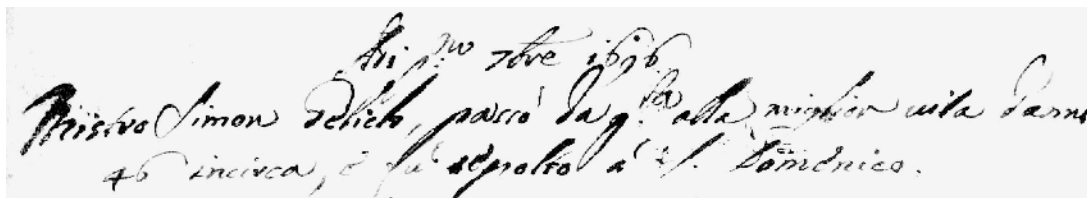 Adi p.mo 7bre 1696
Mistro Simon Delich, passò da q.sta alla miglior vita d'anni
46 incirca, è fù sepolto à S. Domenico.